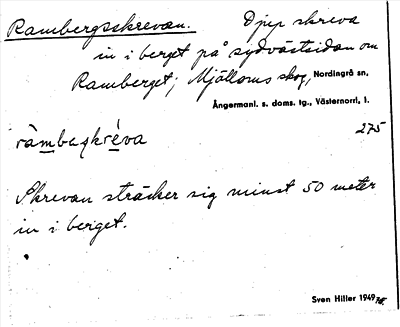 Rambergsskrevan. Djup skreva
in i berget på sydvästsidan om
Ramberget; Mjälloms skog, Nordingrå sn,
Ångermanl. s. doms. tg., Västernorrl. l.
275
ràmbaskrèva
Skrevan sträcker sig minst 50 meter
in i berget.
Sven Hiller 1949